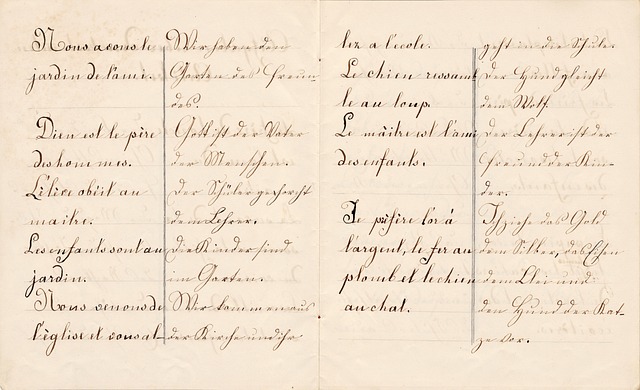 Nous avons le
jardin de l'ami.
Dieu est le père
des hommes.
L'élève obéit au
maitre.
Les enfants sont au
jardin.
Nous venons de
l'église et vous al-
Wir haben den
Garten des Freun-
des.
Gott ist der Vater
der Menschen.
Der Schüler gehorcht
dem Lehrer.
Die Kinder sind
im Garten.
Wir kommen aus
der Kirche und ihr
lez a l'école.
Le chien ressemb
le au loup.
Le maître est l'ami
des enfants.
Je préfère l'or à
l'argent, le fer au
plomb et le chien
au chat.
geht in die Schule.
Der Hund gleicht
dem Wolf.
Der Lehrer ist der
Freund der Kin-
der.
Ich ziehe das Gold
dem Silber, das Eisen
dem Blei und
den Hund der Kat-
ze vor.